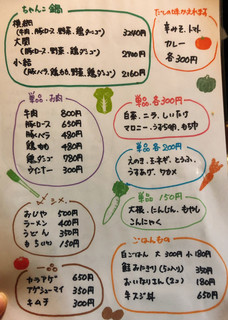 ちゃんこ鍋
横綱
(牛肉、豚ロース、野菜、鶏ダンゴ) 3240円
大関
(豚ロース、野菜、鶏ダンゴ) 2700円
小結
(豚バラ、鶏もも、野菜、鶏ダンゴ) 2160円
だしの味がかえれます。
辛みそ、トマト
カレー
各300円
単品・お肉
牛肉 800円
豚ロース 650円
豚バラ 480円
鶏もも 480円
鶏ダンゴ 780円
ウインナー 300円
単品 各300円
白菜、ニラ、しいたけ
マロニー、うずら明、もちや
単品 各200円
えのき、玉ネギ、とうふ、
うすあげ、ワカメ
単品 150円
大根、にんじん、もやし
こんにゃく
〆
おじや 500円
ラーメン 400円
うどん 350円
もち(1ヶ) 150円
一品
カラアゲ 650円
アゲシューマイ 350円
キムチ 300円
ごはんもの
白ごはん 大 300円 小 180円
鮭おにぎり(5ヶ入り) 350円
おいなりさん(2ヶ) 180円
キズシ丼 650円